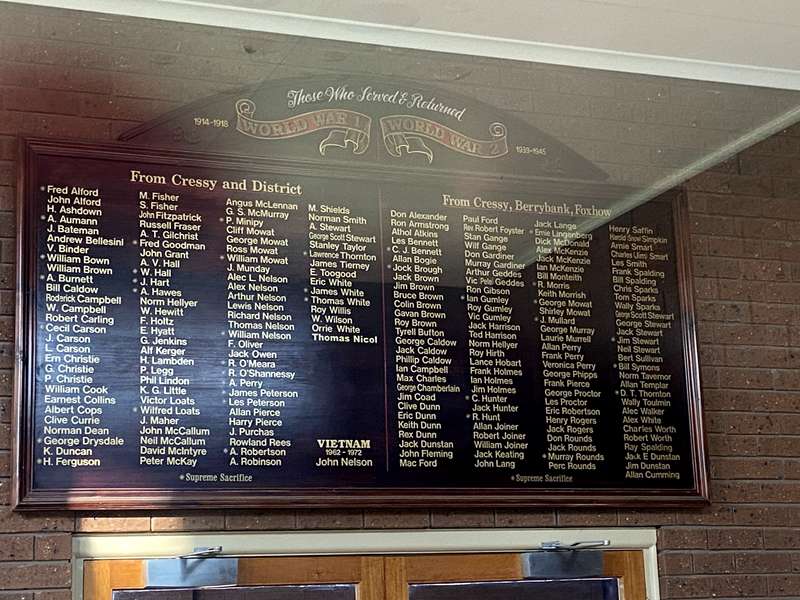 Those Who Served & Returned
1914-1918
WORLD WAR 1
WORLD WAR 2
1939-1945
From Cressy and District
* Fred Alford
John Alford
H. Ashdown
* A. Aumann
J. Bateman
Andrew Bellesini
V. Binder
* William Bown
William Brown
* A. Burnett
Bill Caldow
Roderick Campbell
W. Campbell
Robert Carling
* Cecil Carson
J. Carson
L. Carson
Ern Christie
G. Christie
P. Christie
William Cook
Earnest Collins
Albert Cops
Clive Currie
Norman Dean
* George Drysdale
K. Duncan
* H. Ferguson
M. Fisher
S. Fisher
John Fitzpatrick
Russell Fraser
A. T. Gilchrist
* Fred Goodman
John Grant
A. V. Hall
* W. Hall
* J. Hart
* A. Hawes
Norm Hellyer
W. Hewitt
F. Holtz
E. Hyatt
G. Jenkins
Alf Kerger
H. Lambden
P. Legg
Phil Lindon
K. G. Little
Victor Loats
* Wilfred Loats
J. Maher
John McCallum
Neil McCallum
David McIntyre
Peter McKay
Angus McLennan
G. S. McMurray
* P. Minipy
Cliff Mowat
George Mowat
Ross Mowat
* William Mowat
J. Munday
Alec L. Nelson
Alex Nelson
Arthur Nelson
Lewis Nelson
Richard Nelson
Thomas Nelson
William Nelson
F. Oliver
Jack Owen
R. O'Meara
R. O'Shannessy
A. Perry
* James Peterson
* Les Peterson
Allan Pierce
Harry Pierce
J. Purchas
Rowland Rees
* A. Robertson
A. Robinson
M. Shields
Norman Smith
A. Stewart
George Scott Stewart
Stanley Taylor
* Lawrence Thornton
James Tierney
E. Toogood
Eric White
James White
* Thomas White
Roy Willis
W. Wilson
Orrie White
Thomas Nicol
VIETNAM
1962 - 1972
John Nelson
* Supreme Sacrifice
From Cressy, Berrybank, Foxhow
Don Alexander
Ron Armstrong
Athol Atkins
Les Bennett
* C. J. Bennett
Allan Bogle
Jack Brough
Jack Brown
Jim Brown
Bruce Brown
Colin Brown
Gavan Brown
Roy Brown
Tyrell Button
George Caldow
Jack Caldow
Phillip Caldow
Ian Campbell
Max Charles
George Chamberlain
Jim Coad
Clive Dunn
Eric Dunn
Keith Dunn
Rex Dunn
Jack Dunstan
John Fleming
Mac Ford
Paul Ford
Rev. Robert Foyster
Stan Gange
Wilf Gange
Don Gardiner
Murray Gardiner
Arthur Geddes
Vic Geddes
Ron Gibson
* Ian Gumley
Roy Gumley
Vic Gumley
Jack Harrison
Ted Harrison
Norm Hellyer
Roy Hirth
Lance Hobart
Frank Holmes
Ian Holmes
Jim Holmes
* C. Hunter
Jack Hunter
* R. Hunt
Allan Joiner
Robert Joiner
William Joiner
Jack Keating
John Lang
Jack Lange
* Ernie Lingenberg
Dick McDonald
Alex McKenzie
Jack McKenzie
Ian McKenzie
Bill Monteith
* R. Morris
Keith Morrish
* George Mowat
Shirley Mowat
* J. Mullard
George Murray
Laurie Murrell
Allan Perry
Frank Perry
Veronica Perry
George Phipps
Frank Pierce
George Proctor
Les Proctor
Eric Robertson
Henry Rogers
Jack Rogers
Don Rounds
Jack Rounds
* Murray Rounds
Perc Rounds
Henry Saffin
Harold Snow Simpkin
Arnie Smart
Charles Ulmsl Smart
Les Smith
Frank Spalding
Bill Spalding
Chris Sparks
Tom Sparks
Wally Sparks
George Scott Stewart
George Stewart
Jack Stewart
* Jim Stewart
Neil Stewart
Bert Sullivan
* Bill Symons
Norm Tavernor
Allan Templar
* D. T. Thornton
Wally Toulmin
Alec Walker
Alex White
Charles Worth
Robert Worth
Ray Spalding
Jack E Dunstan
Jim Dunstan
Allan Cumming
* Supreme Sacrifice